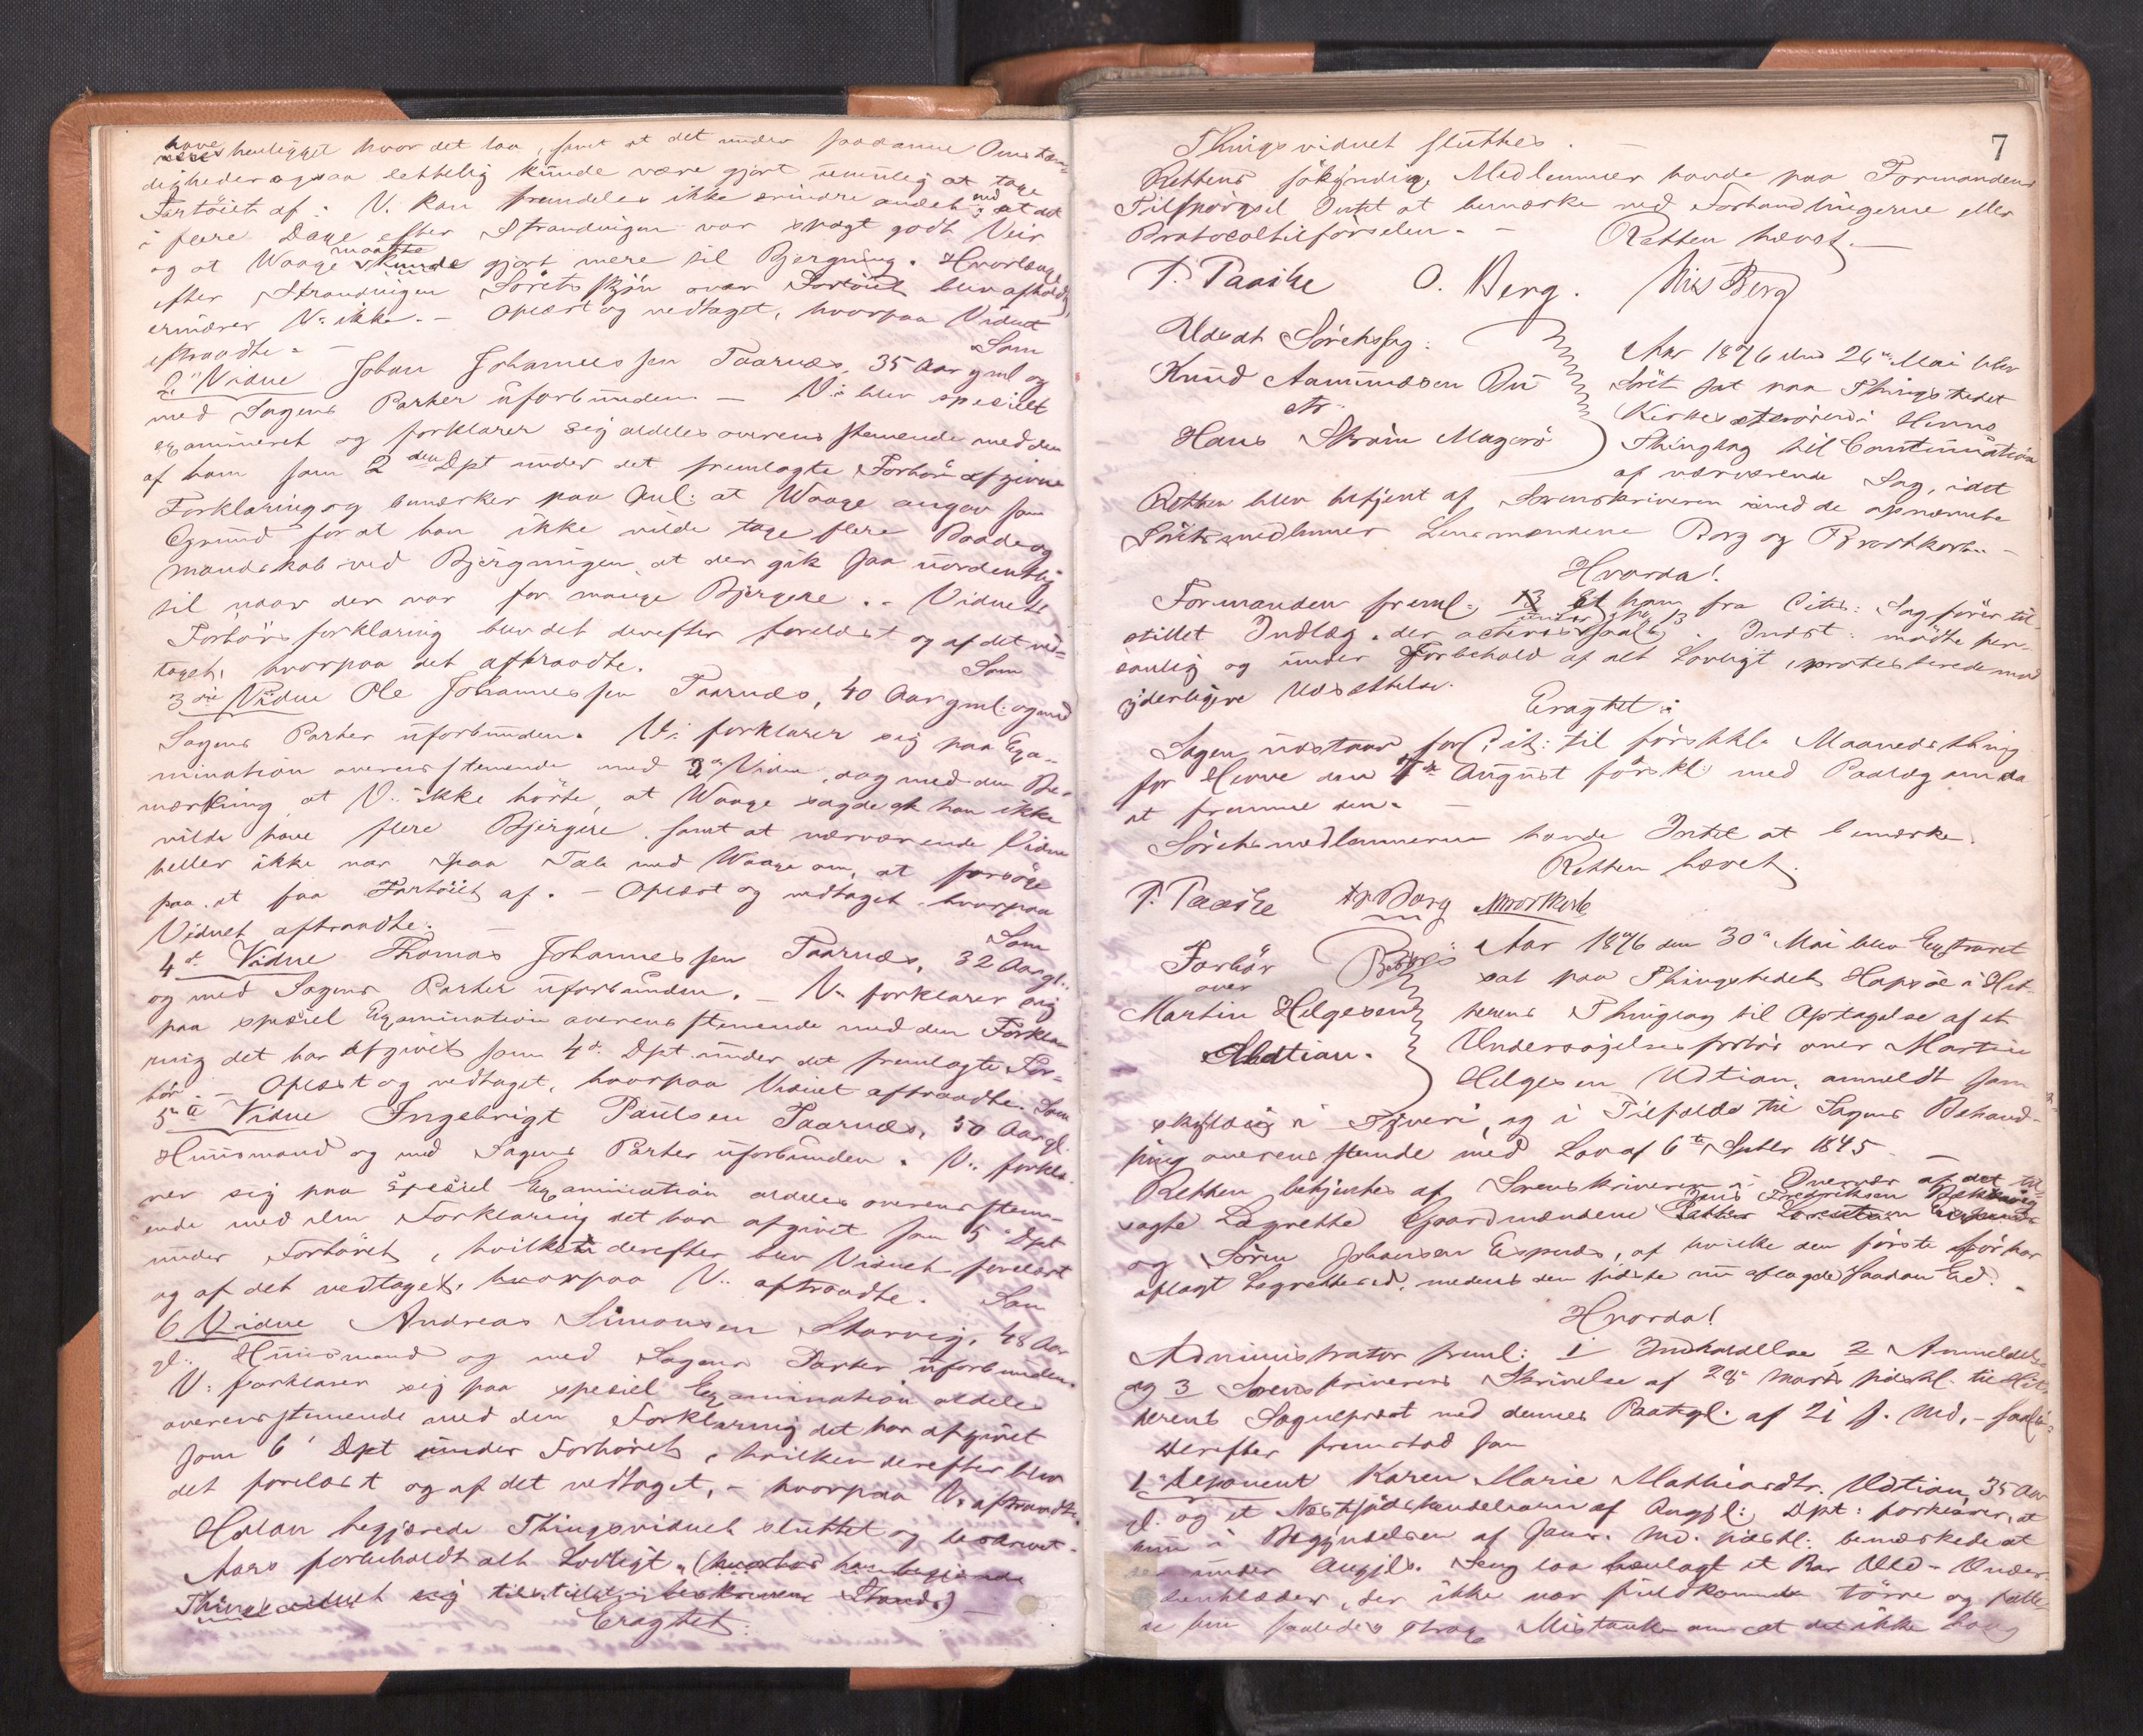 have henligget hvor det laa, samt at det under saadanne Omstæn-
digheder ogsaa lettelig kunde være gjort umulig at tage
Fartöiet af. V. kan fremdeles ikke erindre andet end at det
i flere Dage efter Strandingen var svagt godt Veir
og at Waage maatte kunde gjort mere til Bjergning. Hvorlænge
efter Strandingen Söretsskjön over Fartöiet blev afholdt,
erindrer V. ikke. - Oplæst og vedtaget, hvorpaa Vidnet
aftraadte. - Som
2det Vidne Johan Johannessen Taarnæs, 35 Aar gml og
med Sagens Parter uforbunden. - V. blev specielt
examineret og forklarer sig aldeles overensstemmende med den
af ham som 2den Dpt under det fremlagte Forhör afgivne
Forklaring og bemærker paa Anl: at Waage angav som
Grund for at han ikke vilde tage flere Baade og
Mandskab ved Bjergningen, at der gik saa uordentlig
til naar der var for mange Bjergere. - Vidnets
Forhörsforklaring blev det derefter forelæst og af det ved-
taget, hvorpaa det aftraadte. Som
3die Vidne Ole Johannessen Taarnæs, 40 Aar gml: og med
Sagens Parter uforbunden. V: forklarer sig paa Exa-
mination overensstemmende med 2det Vidne, dog med den Be-
mærkning at V. ikke hörte, at Waage sagde at han ikke
vilde have flere Bjergere, samt at nærværende Vidne
heller ikke var paa Tale med Waage om, at forsöge
paa at faa Fartöiet af. - Oplæst og vedtaget hvorpaa
Vidnet aftraadte. - Som
4de Vidne Thomas Johannessen Taarnæs, 32 Aar gl.
og med Sagens Parter uforbunden. - V. forklarer sig
paa speciel Examination overensstemmende med den Forkla-
ring det har afgivet som 4de Dpt under det fremlagte For-
hör. - Oplæst og vedtaget, hvorpaa Vidnet aftraadte. Som
5te Vidne Ingebrigt Paulsen Taarnæs, 50 Aar gl.
Huusmand og med Sagens Parter uforbunden. V. forkla-
rer sig paa speciel Examination aldeles overensstem-
ende med den Forklaring det har afgivet som 5 Dpt
under Forhöret, hvilken derefter blev Vidnet forelæst
og af det vedtaget, hvorpaa V. aftraadte. Som
6 Vidne Andreas Simonsen Storvig, 48 Aar
gl. Huusmand og med Sagens Parter uforbunden.
V: forklarer sig paa speciel Examination aldeles
overensstemmende med den Forklaring det har afgivet
som 6' Dpt under Forhöret, hvilken derefter blev
det forelæst og af det vedtaget, - hvorpaa V. aftraadte.
begjærede Thingsvidnet sluttet og
forbeholdt alt Lovligt. (hvorhos han begjærede
Thingsvidnet sig tilstillet i beskreven Stand.) -
Eragtet:
7
Thingsvidnet sluttes. -
Rettens sökyndige Medlemmer havde paa Formandens
Tilspörgsel Intet at bemærke ved Forhandlingerne eller
Protocoltilförselen. - Retten hævet. -
P. Paaske O. Berg. Nils Berg
Udsat Söretssag:
Knud Aamundsen
ctr.
Hans Ström Magerö
Aar 1876 den 26de Mai blev
Söret sat paa Thingstedet
Kirkesæterören i Hevne
Thinglag til Continuation
af nærværende Sag, idet
Retten blev betjent af Sorenskriveren med de opnævnte
Söretsmedlemmer Lensmændene Borg og Brodtkorb. -
Hvorda!
Formanden freml: 13 Et ham fra Cits: Sagförer til-
stillet Indlæg. der acteres under No 13. Indst: mödte per-
sonlig og under Forbehold af alt Lovligt, protesterede mod
yderligere Udsættelse.
Eragtet:
Sagen udstaar for Cit: til förstkl. Maanedsthing
for Hevne den 7de August förstkl. med Paalæg om da
at fremme den. -
Söretsmedlemmerne havde Intet at bemærke.
Retten hævet.
P. Paaske Borg Brodtkorb
Forhör
over
Martin Helgesen
Udtian.
Aar 1876 den 30te Mai blev Extraret
sat paa Thingstedet Hopsöe i Hit-
terens Thinglag til Optagelse af et
Undersögelsesforhör over Martin
Helgesen Udtian, anmeldt som
skyldig i Tyveri, og i Tilfælde til Sagens Behand-
ling overensstemmende med Lov af 6te Septbr 1845 -
Retten betjentes af Sorenskriveren i Overvær af det til-
Jens Fredriksen
sagte Lagrette Gaardmændene
og Sören Johansen Espnes, af hvilke den förste för har
aflagt Lagretteed, medens den sidste nu aflagde saadan Ed. -
Hvorda!
Administrator freml: 1 Indkaldelse 2 Anmeldelse
og 3 Sorenskriverens Skrivelse af 28de Marts sidstl. til Hit-
terens Sogneprest med dennes Paategn. af 21 f. Md. -
Derefter fremstod som
1 Deponent Karen Marie Mathiasdtr. Udtian 35 Aar
gl. og et Næstsödskendebarn af Angjl: Dpt: forklarer, at
hun i Begyndelsen af Janr. Md. sidstl. bemærkede at
der under Angjls. Seng laa henlagt et Par Uld-Under-
benklæder, der ikke var fuldkommen törre og fatte-
de hun saaledes strax Mistanke om at det ikke hang